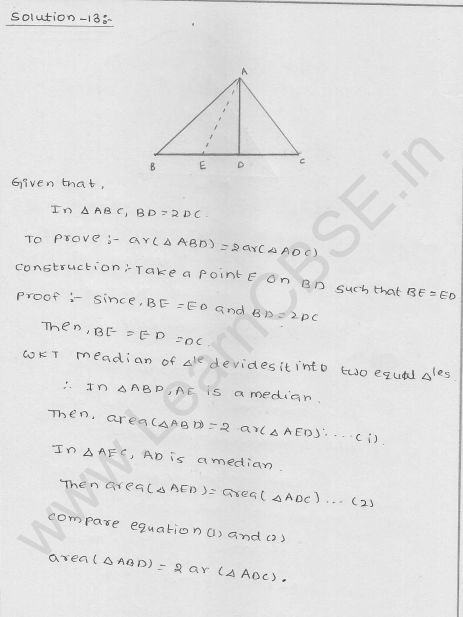 Solution-13:-
A
B E D C
Given that,
In △ABC, BD=2DC.
To prove:- ar(△ABD)=2ar(△ADC)
construction:- Take a point E on BD such that BE=ED
Proof:- Since, BE=ED and BD=2DC
Then, BE=ED=DC.
WKT meadian of △le devides it into two equal △les.
∴ In △ABD, AE is a median.
Then, area(△ABD)=2 ar(△AED)....(1).
In △AEC, AD is a median.
Then area(△AED)=area(△ADC)...(2)
compare equation (1) and (2)
area(△ABD)=2 ar(△ADC).
www.LearnCBSE.in